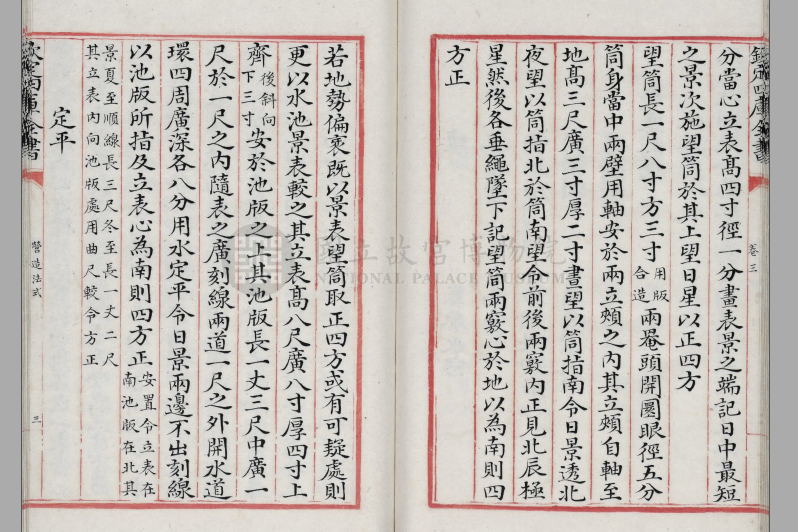 欽定四庫全書
卷三
分當心立表髙四寸徑一分畫表景之端記日中最短
之景次施望筒於其上望日星以正四方
望筒長一尺八寸方三寸用版合造兩罨頭開圜眼徑五分
筒身當中兩壁用軸安於兩立頰之内其立頰自軸至
地髙三尺廣三寸厚二寸晝望以筒指南令日景透北
夜望以筒指北於筒南望令前後兩竅内正見北辰極
星然後各垂繩墜下記望筒兩竅心於地以為南則四
方正
若地勢偏衺既以景表望筒取正四方或有可疑處則
更以水池景表較之其立表髙八尺廣八寸厚四寸上
齊後斜向下三寸安於池版之上其池版長一丈三尺中廣一
尺於一尺之内隨表之廣刻線兩道一尺之外開水道
環四周廣深各八分用水定平令日景兩邊不出刻線
以池版所指及立表心為南則四方正安置令立表在南池版在北其
景夏至順線長三尺冬至長一丈二尺
其立表内向池版處用曲尺較令方正
定平
欽定四庫全書
營造法式
三
國立故宮博物院
NATIONAL PALACE MUSEUM